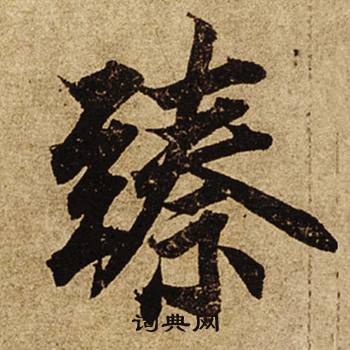 臻
词典网